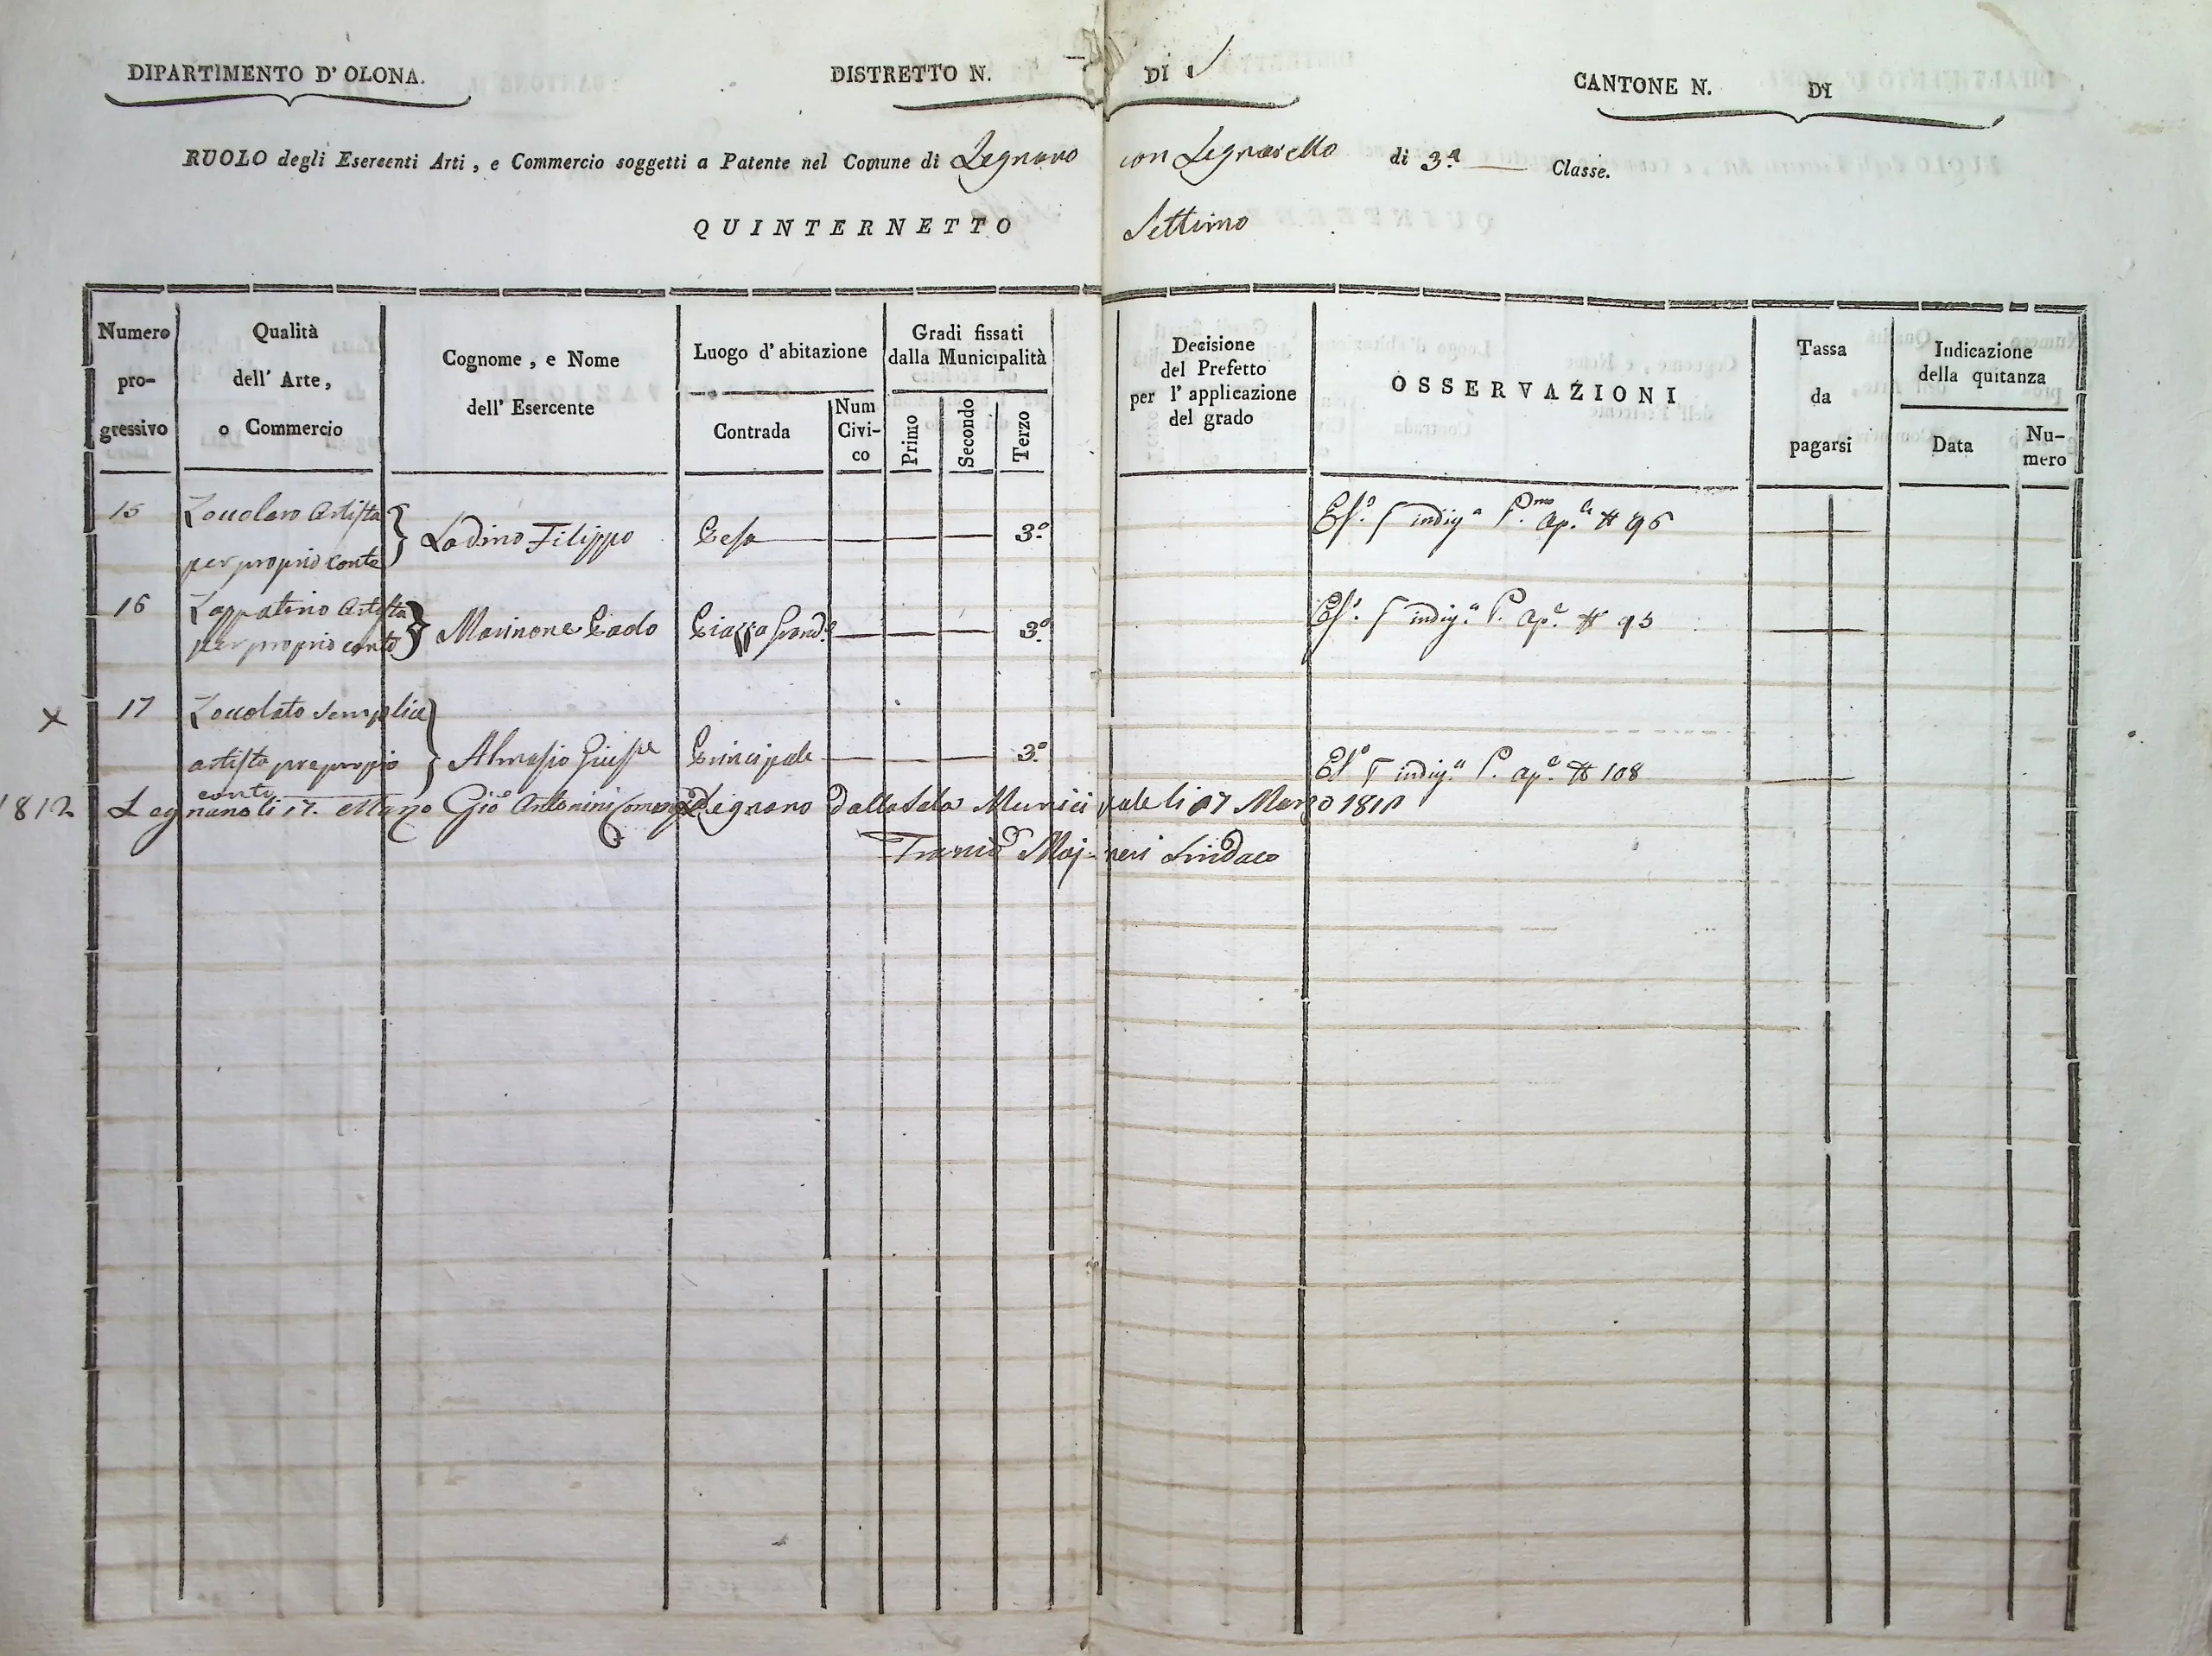 DIPARTIMENTO D' OLONA. DISTRETTO N. DI CANTONE N. DI
RUOLO degli Esercenti Arti, e Commercio soggetti a Patente nel Comune di Legnano con Legnarello di 3.ª Classe.
QUINTERNETTO Settimo
Numero progressivo
Qualità dell' Arte, o Commercio
Cognome, e Nome dell' Esercente
Luogo d' abitazione
Contrada
Num Civi-
co
Gradi fissati dalla Municipalità
Primo
Secondo
Terzo
Decisione del Prefetto per l' applicazione del grado
OSSERVAZIONI
Tassa da pagarsi
Indicazione della quitanza
Data
Nu-
mero
15 Zoccolaro Artista
per proprio conto } Ladino Filippo 3.º 96
16 Zappatino Artista
per proprio conto } Marinone Paolo Piazza Grande 3.º 95
x 17 Zoccolato semplice
artista pre proprio
conto } Almasio Giusep.e Principale 3.º 108
1812 Legnano li 17. Marzo Gio Antonini Legnano Dalla Sala Municipale li 17 Marzo
Majneri Sindaco